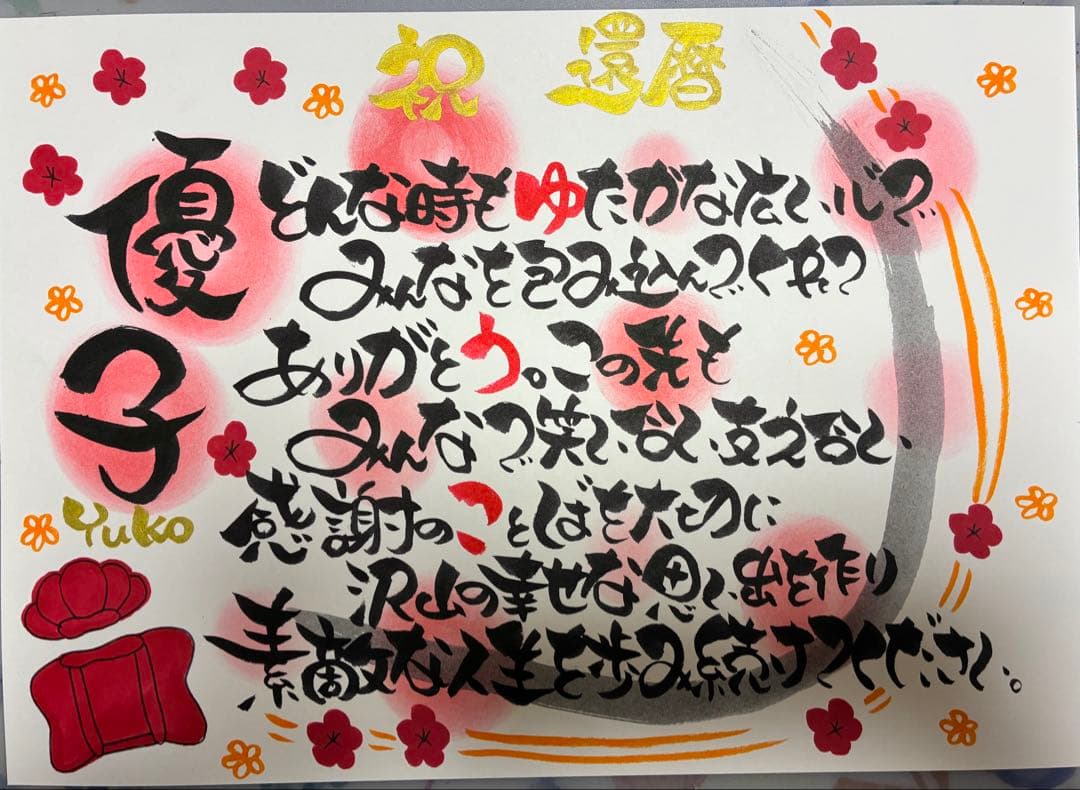 祝 還暦
優子
Yuko
どんな時もゆたかな広い心で
みんなを包み込んでくれて
ありがとう。この先も
みんなで笑い合い、支え合い、
感謝のことばを大切に
沢山の幸せな思い出を作り
素敵な人生を歩み続けてください。